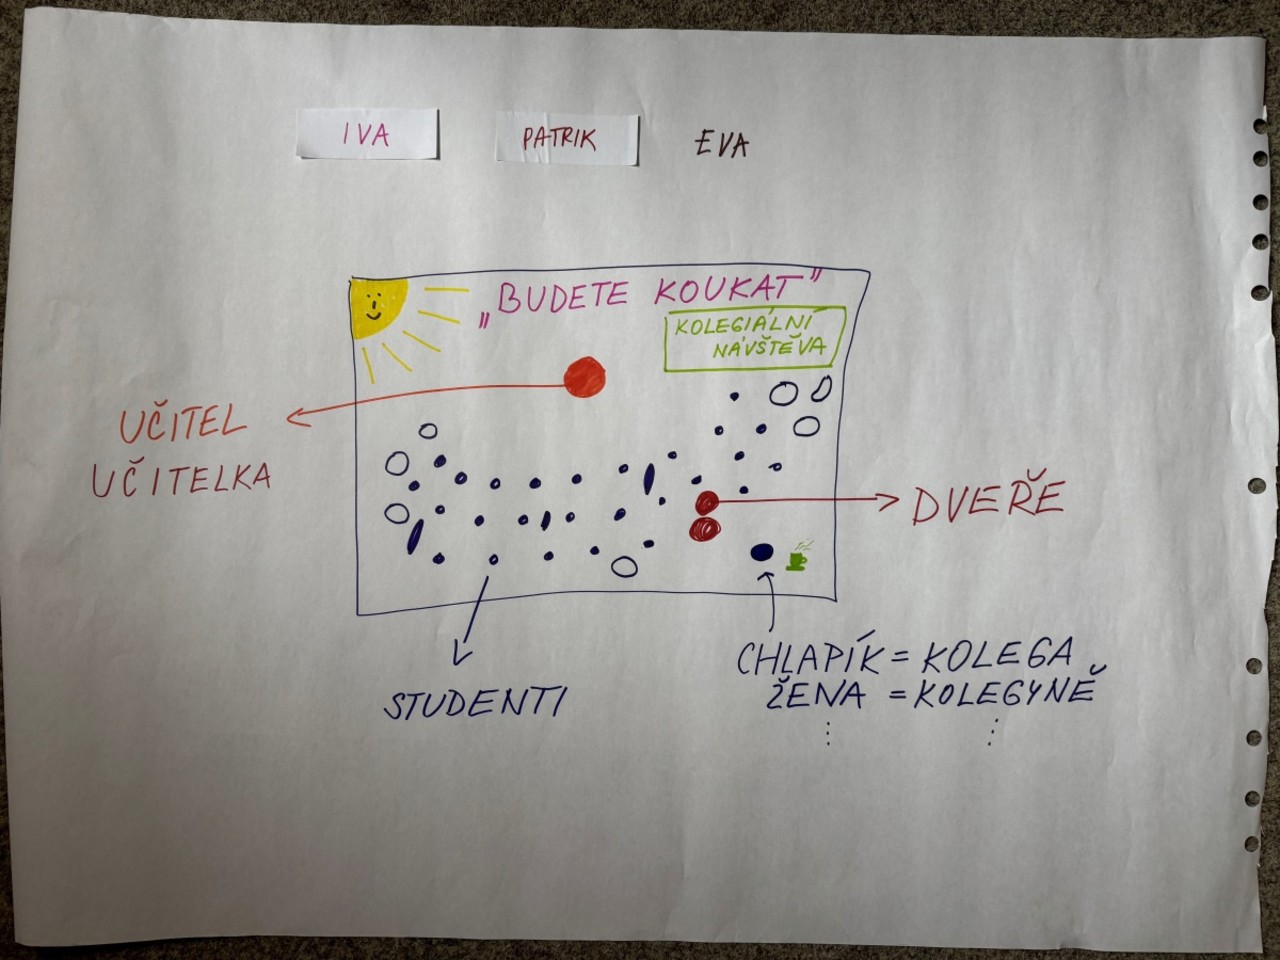 IVA
PATRIK
EVA
„BUDETE KOUKAT”
KOLEGIÁLNÍ
NÁVŠTĚVA
UČITEL
UČITELKA
DVEŘE
STUDENTI
CHLAPÍK = KOLEGA
ŽENA = KOLEGYNĚ